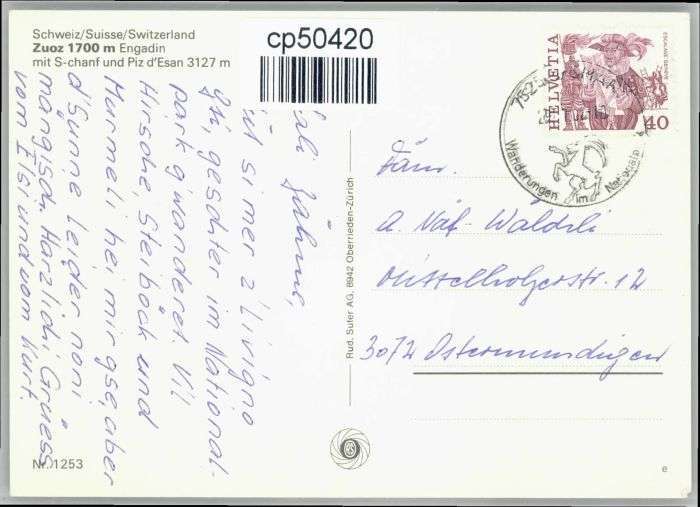 Schweiz/Suisse/Switzerland
Zuoz 1700 m Engadin
mit S-chanf und Piz d'Esan 3127 m
cp50420
HELVETIA
40
Wanderungen im
simer z'Livigno
gsi, geschter im National-
park gwanderet. Vil
Hirsche, Steiböck und
Murmeli hei mir gse, aber
d'Sunne leider noni
mängisch. Härzlichi Grüess
vom Elsi und vom Kurt.
Rud. Suter AG, 8942 Oberrieden-Zürich
Fam.
A. Näf-Waldsli
Mittelholzerstr. 12
3072 Ostermundigen
Nr. 1253
e